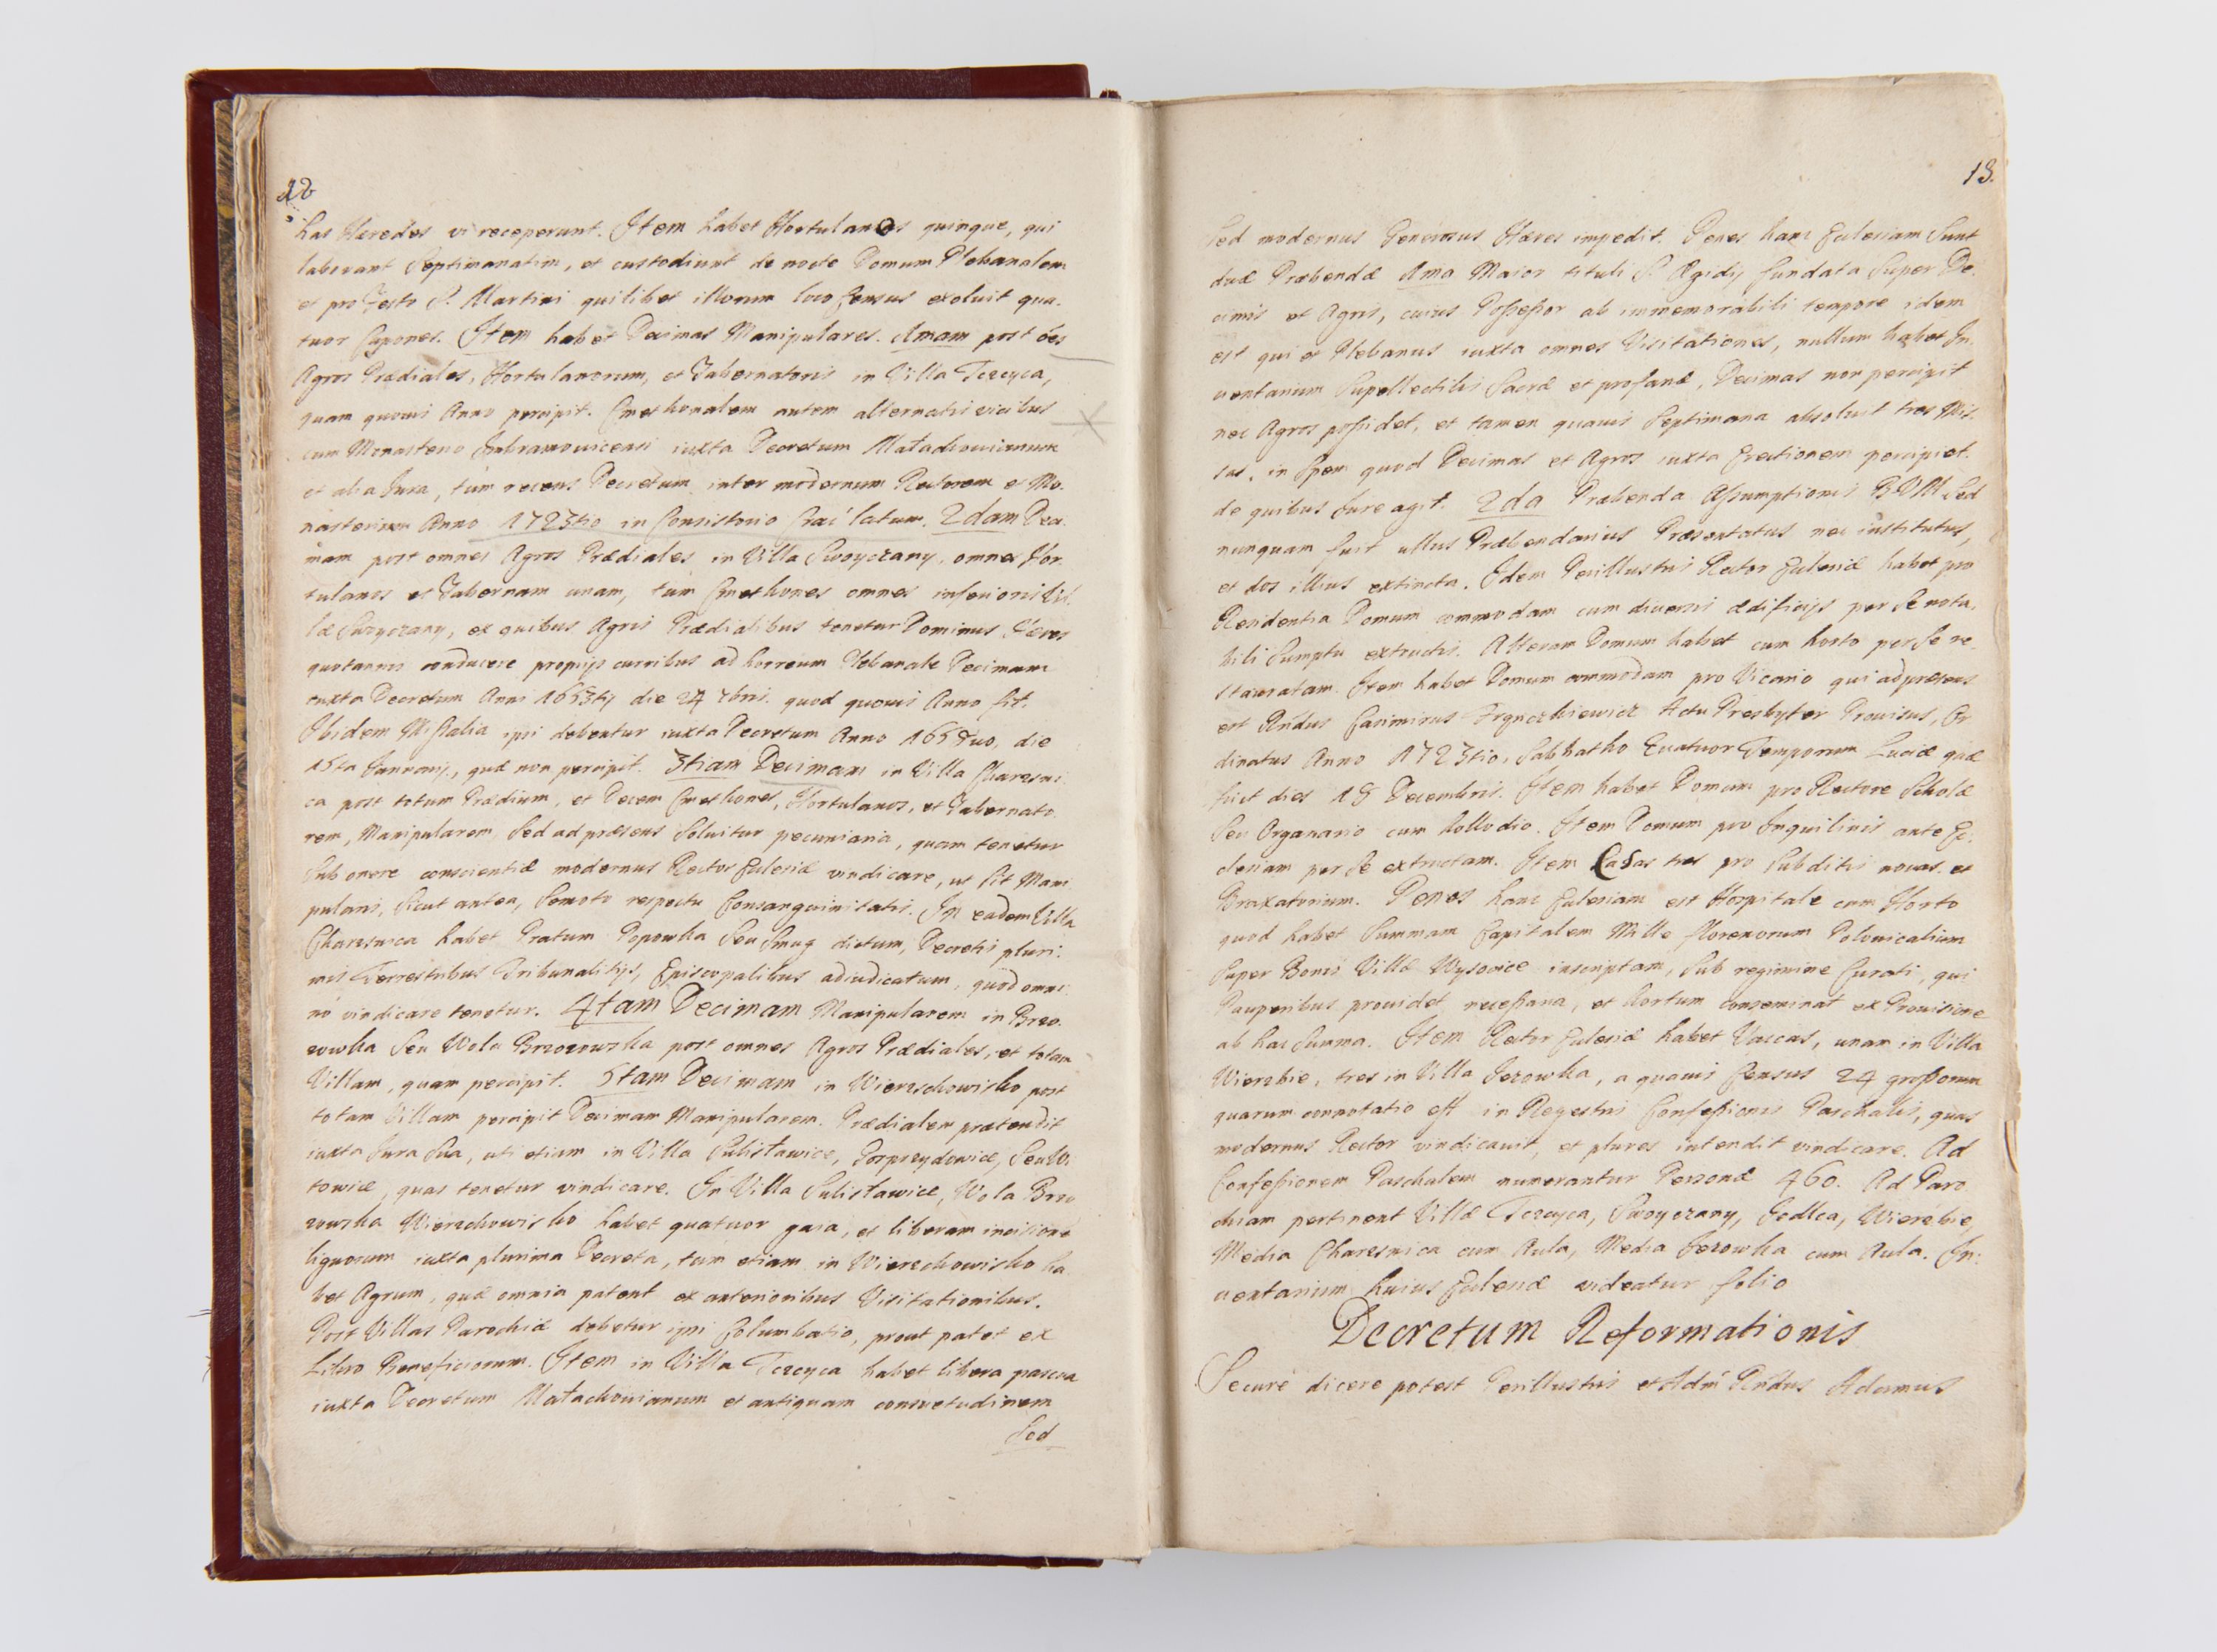 12
has Hæredes vi receperunt. Item habet Hortulanos quinque, qui
laborant Septimanatim, et custodiunt de nocte Domum Plebanalem
et pro Festo S. Martini quilibet illorum loco Census exoluit qua-
tuor Capones. Item habet Decimas Manipulares. Imam post oẽs
Agros Prædiales, Hortulanorum, et Tabernatoris in Villa Tczyca,
quam quovis Anno percipit. Cmethonalem autem alternatis vicibus
cum Monasterio Imbramovicensi iuxta Decretum Małachovianum
et alia Jura, tum recens Decretum inter modernum Rectorem et Mo-
nasterium Anno 1723tio in Consistorio Crac̃ latum. 2dam Deci-
mam post omnes Agros Prædiales in Villa Swoyczany, omnes Hor-
tulanos et Tabernam unam, tum Cmethones omnes inferioris Vil-
læ Swoyczany, ex quibus Agris Prædialibus tenetur Dominus Hæres
quotannis conducere proprijs curribus ad horreum Plebanale Decimam
iuxta Decretum Anni 1653tij die 24 7bris. quod quovis Anno fit.
Ibidem Missalia ipsi debentur iuxta Decretum Anno, die
15ta Januarij, quæ non percipit. 3tiam Decimam in Villa Charszni-
ca post totum Prædium, et Decem Cmethones, Hortulanos, et Tabernato-
rem, Manipularem, Sed ad præsens Soluitur pecuniaria, quam tenetur
Sub onere conscientiæ modernus Rector Ecclesiæ vindicare, ut sit Mani-
pularis, Sicut antea, Semoto respectu Consanguinitatis. In eadem Villa
Charsznica habet Pratum Popowka Seu Smug dictum, Decretis pluri-
mis Terrestribus Tribunalitijs, Episcopalibus adiudicatum, quod omni-
nò vindicare tenetur. 4tam Decimam Manipularem in Brzo-
zowka Seu Wola Brzozowska post omnes Agros Prædiales, et totam
Villam, quam percipit. 5tam Decimam in Wierzchowisko post
totam Villam percipit Decimam Manipularem. Prædialem prætendit
iuxta Jura Sua, uti etiam in Villa Sulisławice, Seu
towice, quas tenetur vindicare. In Villa Sulisławice, Wola Brzo
zowska Wierzchowisko habet quatuor gaia, et liberam incisionẽ
lignorum iuxta plurima Decreta, tum etiam in Wierzchowisko ha
bet Agrum, quæ omnia patent ex anterioribus Visitationibus.
Post Villas Parochiæ debetur ipsi Columbatio, prout patet ex
Libro Beneficiorum. Item in Villa Tczyca habet libera pascua
iuxta Decretum Małachovianum et antiquam consuetudinem
Sed
13.
Sed modernus Generosus Hæres impedit. Penes hanc Ecclesiam Sunt
duæ Præbendæ Ima Maior tituli S. Ægidij fundata Super De-
cimis et Agris, cuius Possessor ab immemorabili tempore idem
est qui et Plebanus iuxta omnes Visitationes, nullum habet In-
ventarium Supellectilis Sacræ et profanæ, Decimas non percipit
nec Agros possidet, et tamen quavis Septimana absoluit tres Mis-
sas, in Spem quod Decimas et Agros iuxta Erectionem percipiet.
de quibus Jure agit. 2da Præbenda Assumptionis BVM Sed
nunquam fuit ullus Præbendarius Præsentatus nec institutus,
et dos illius extincta. Idem Perillustris Rector Ecclesiæ habet pro
Residentia Domum commodam cum diversis ædificijs per Se nota-
bili Sumptu extructis. Alteram Domum habet cum horto per Se re-
stauratam. Item habet Domum commodam pro Vicario qui ad præsens
est Rñdus Casimirus Actu Presbyter Provisus, Or-
dinatus Anno 1723tio, Sabbatho Quatuor Temporum Luciæ quæ
fuit dies 18 Decembris. Item habet Domum pro Rectore Scholæ
Seu Organario cum hollodio. Item Domum pro Inquilinis ante Ec-
clesiam per Se extructam. Item Casas tres pro Subditis novas et
Braxatorium. Penes hanc Ecclesiam est Hospitale cum Horto
quod habet Summam Capitalem Mille florenorum Polonicalium
Super Bonis Villæ Wysocice inscriptam, Sub regimine Curati, qui
Pauperibus providet necessaria, et hortum conseminat ex Provisione
ab hac Summa. Item Rector Ecclesiæ habet Vaccas, unam in Villa
Wierzbie, tres in Villa Jezowka, a quavis Census 24 grossorum
quarum connotatio est in Regestris Confessionis Paschalis, quas
modernus Rector vindicavit, et plures intendit vindicare. Ad
Confessionem Paschalem numerantur Personæ 460. Ad Paro
chiam pertinent Villæ Tczyca, Swoyczany, Jedlca, Wierzbie,
Media Charsznica cum Aula, Media Jezowka cum Aula. In-
ventarium huius Ecclesiæ videatur folio
Decretum Reformationis
Securè dicere potest Perillustris et Adm̃ Rñdus Adamus